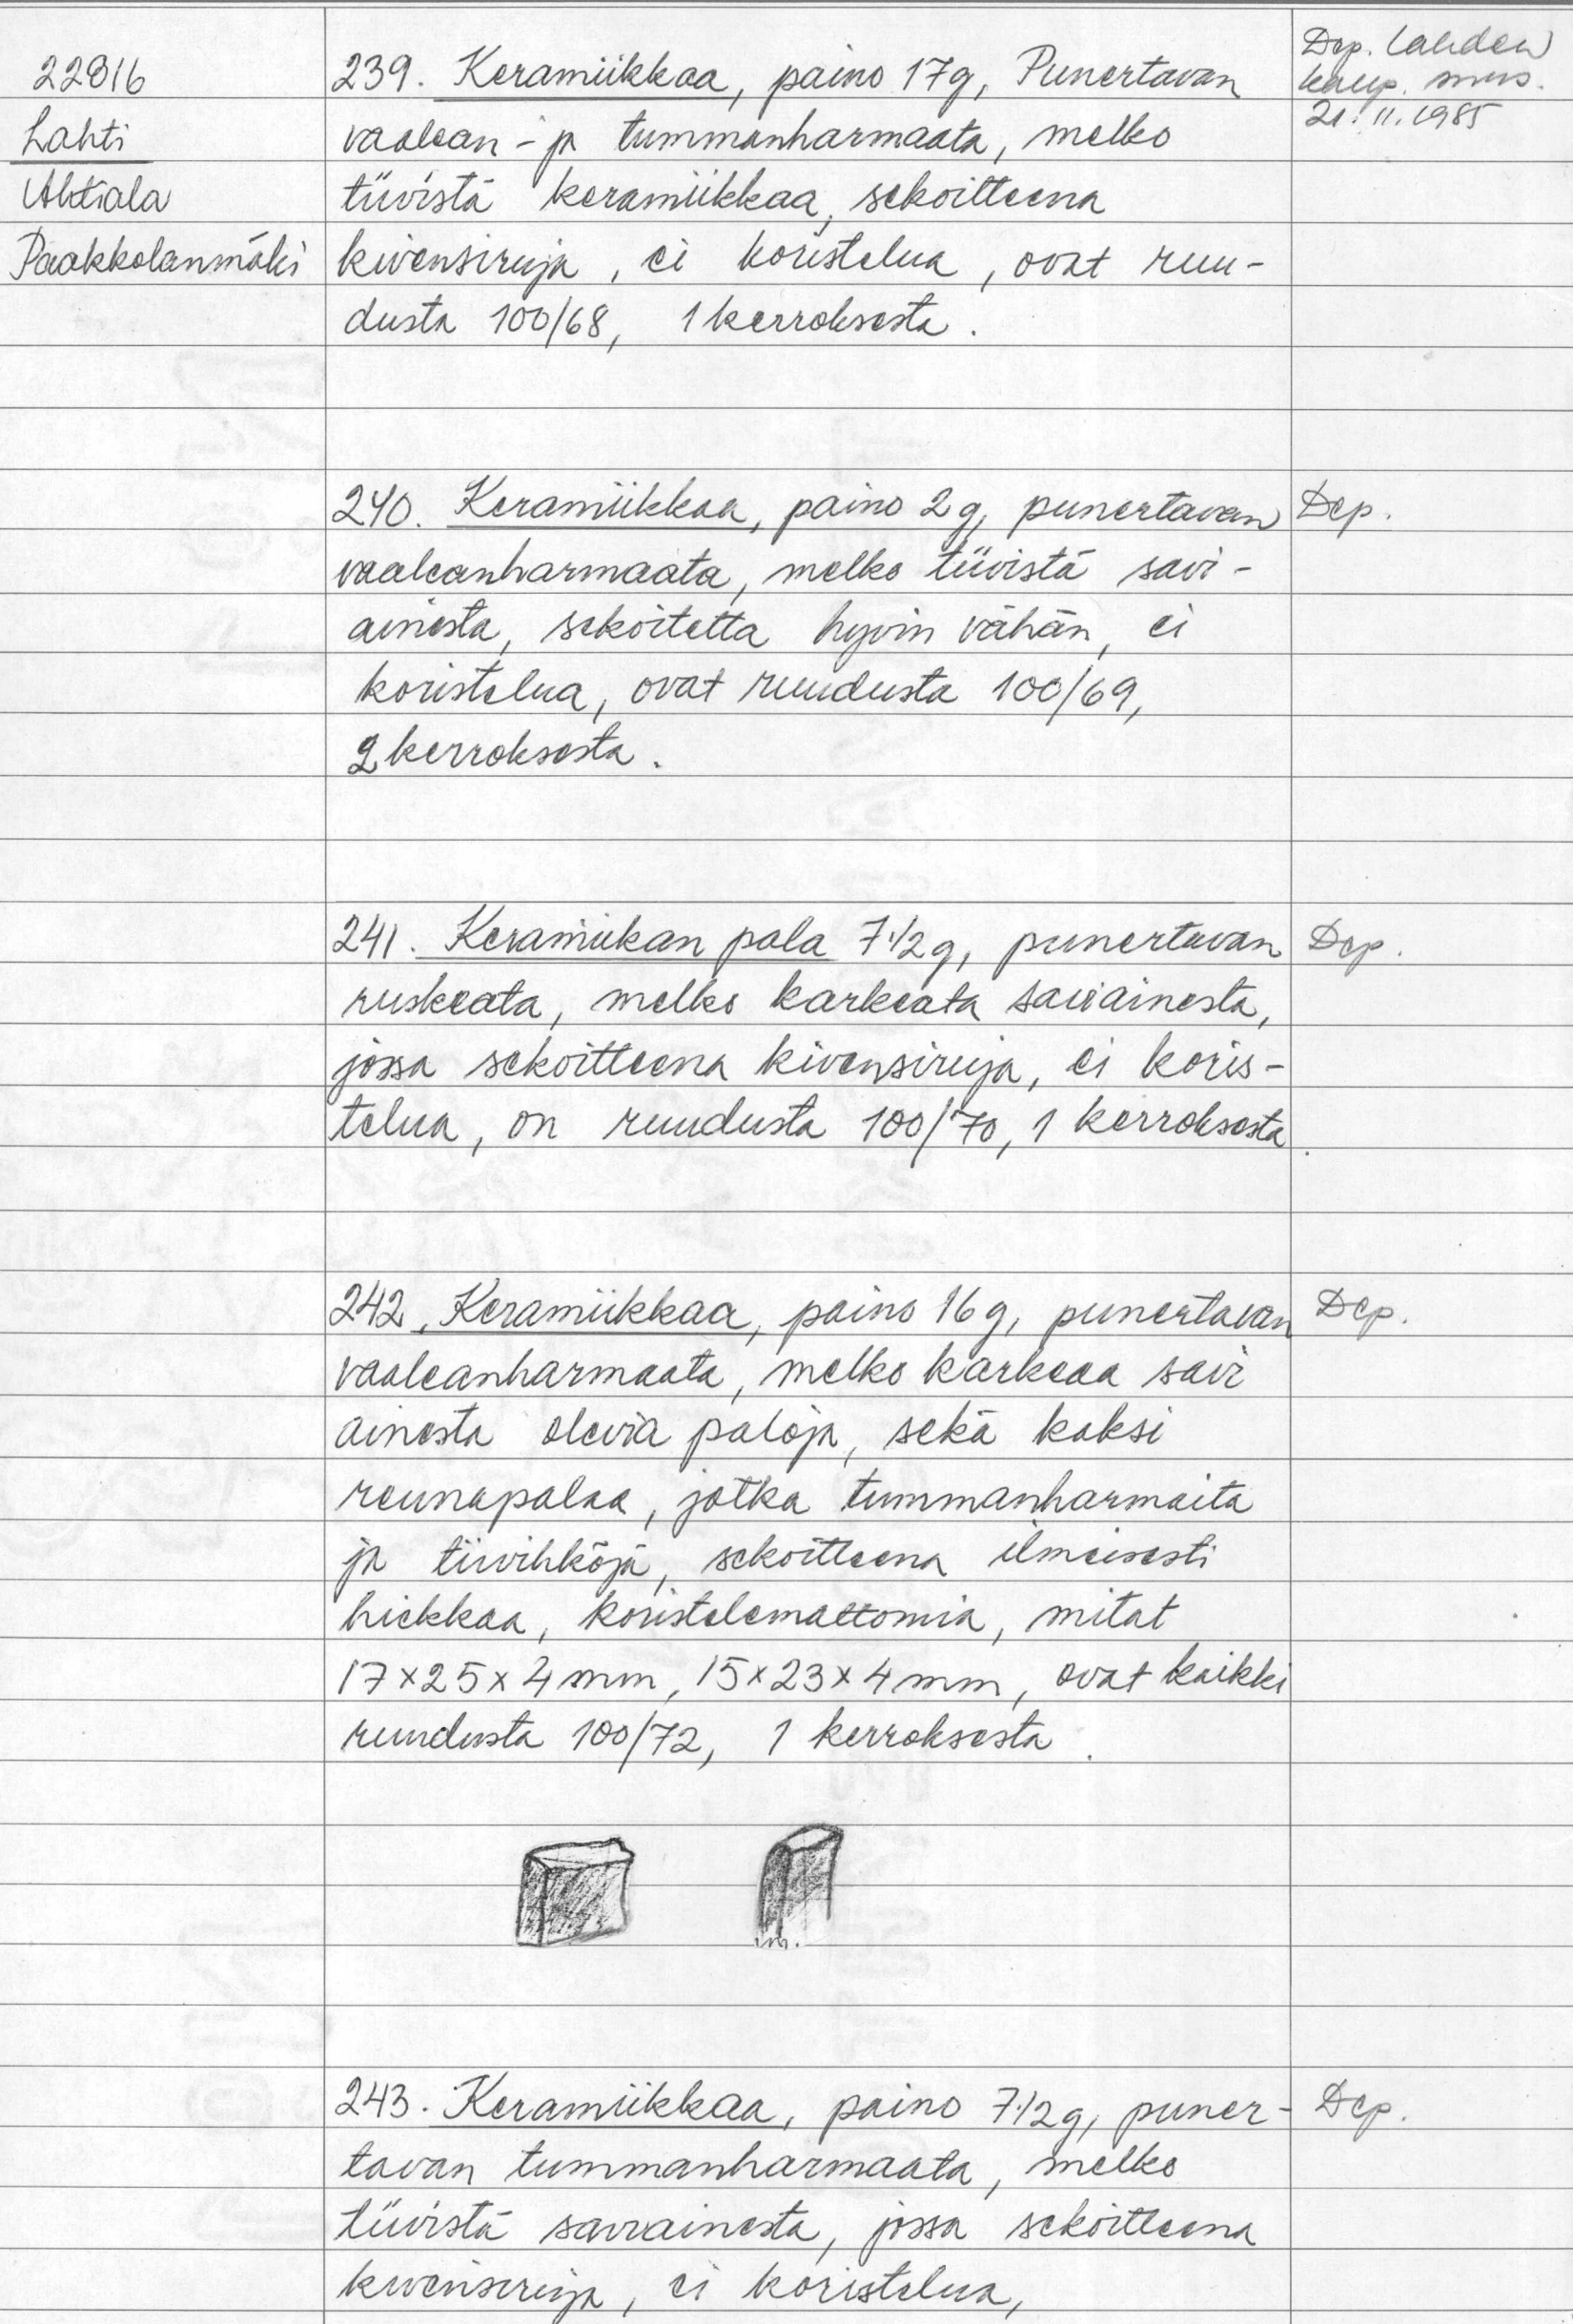 22816
Lahti
Ahtiala
Paakkolanmäki
239. Keramiikkaa, paino 17g, Punertavan
vaalean- ja tummanharmaata, melko
tiivistä keramiikkaa, sekoitteena
kivensiruja, ei koristelua, ovat ruu-
dusta 100/68, 1 kerroksesta.
Dep. Lahden
kaup. mus.
21.11.1985
240. Keramiikkaa, paino 2g, punertavan
vaaleanharmaata, melko tiivistä savi-
ainesta, sekoitetta hyvin vähän, ei
koristelua, ovat ruudusta 100/69,
2 kerroksesta.
Dep.
241. Keramiikan pala 7 1/2 g, punertavan
ruskeata, melko karkeata saviainesta,
jossa sekoitteena kivensiruja, ei koris-
telua, on ruudusta 100/70, 1 kerroksesta.
Dep.
242. Keramiikkaa, paino 16g, punertavan
vaaleanharmaata, melko karkeaa savi
ainesta olevia paloja, sekä kaksi
reunapalaa, jotka tummanharmaita
ja tiivihköjä, sekoitteena ilmeisesti
hiekkaa, koristelemattomia, mitat
17x25x4mm, 15x23x4mm, ovat kaikki
ruudusta 100/72, 1 kerroksesta.
Dep.
243. Keramiikkaa, paino 7 1/2 g, puner-
tavan tummanharmaata, melko
tiivistä saviainesta, jossa sekoitteena
kivensiruja, ei koristelua,
Dep.